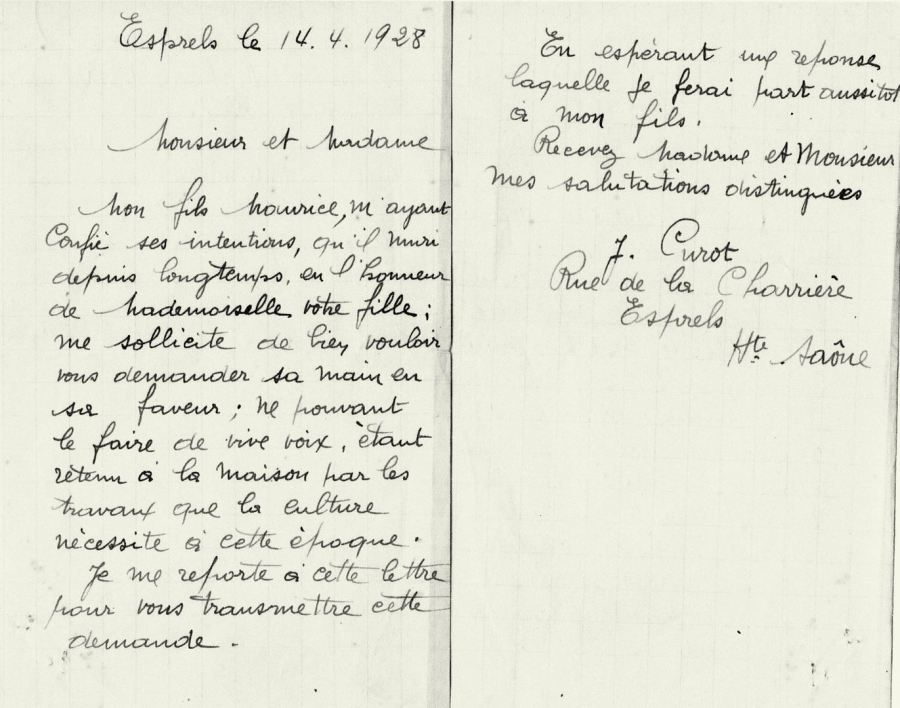 Esprels le 14. 4. 1928
Monsieur et Madame
Mon fils Maurice, m'ayant
Confié ses intentions, qu'il muri
depuis longtemps, en l'honneur
de Mademoiselle votre fille ;
me sollicite de bien vouloir
vous demander sa main en
sa faveur ; ne pouvant
le faire de vive voix, étant
retenu à la maison par les
travaux que la culture
nécessite à cette époque.
Je me reporte à cette lettre
pour vous transmettre cette
demande.
En espérant une reponse
laquelle je ferai part aussitot
à mon fils.
Recevez Madame et Monsieur
mes salutations distinguées
J. Curot
Rue de la Charrière
Esprels
Hte Saône